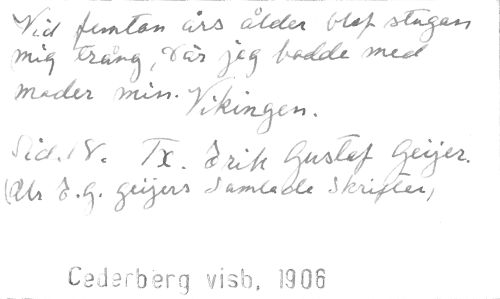 Vid femton års ålder blef stugan
mig trång, där jag bodde med
moder min. Vikingen.
Sid. IV. Tx. Erik Gustaf Geijer.
(Ur E.G. Geijers Samlade Skrifter,
Cederberg visb, 1906